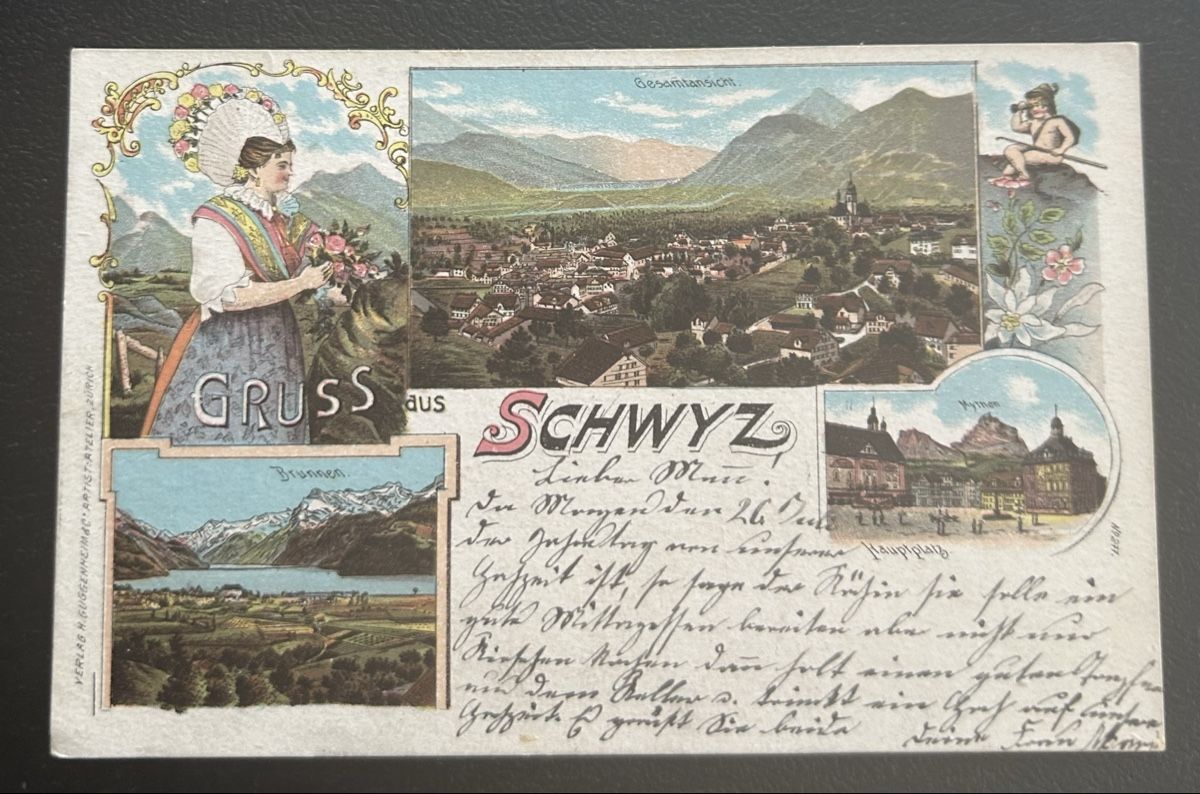 Gesamtansicht.
GRUSS aus SCHWYZ
Brunnen.
Mythen
Hauptplatz.
No 277.
VERLAG H. GUGGENHEIM & Co ARTIST. ATELIER, ZÜRICH
Lieber Mann!
Da Morgen den 26. Juli
der Jahrestag von unserer
Hochzeit ist, so sage der Köchin sie solle ein
gute Mittagessen bereiten aber nicht nur
Kirschen kochen dann holt einen guten
aus dem Keller u. trinkt ein Hoch auf unsere
Hochzeit. Es grüsst Sie beide
deine Frau